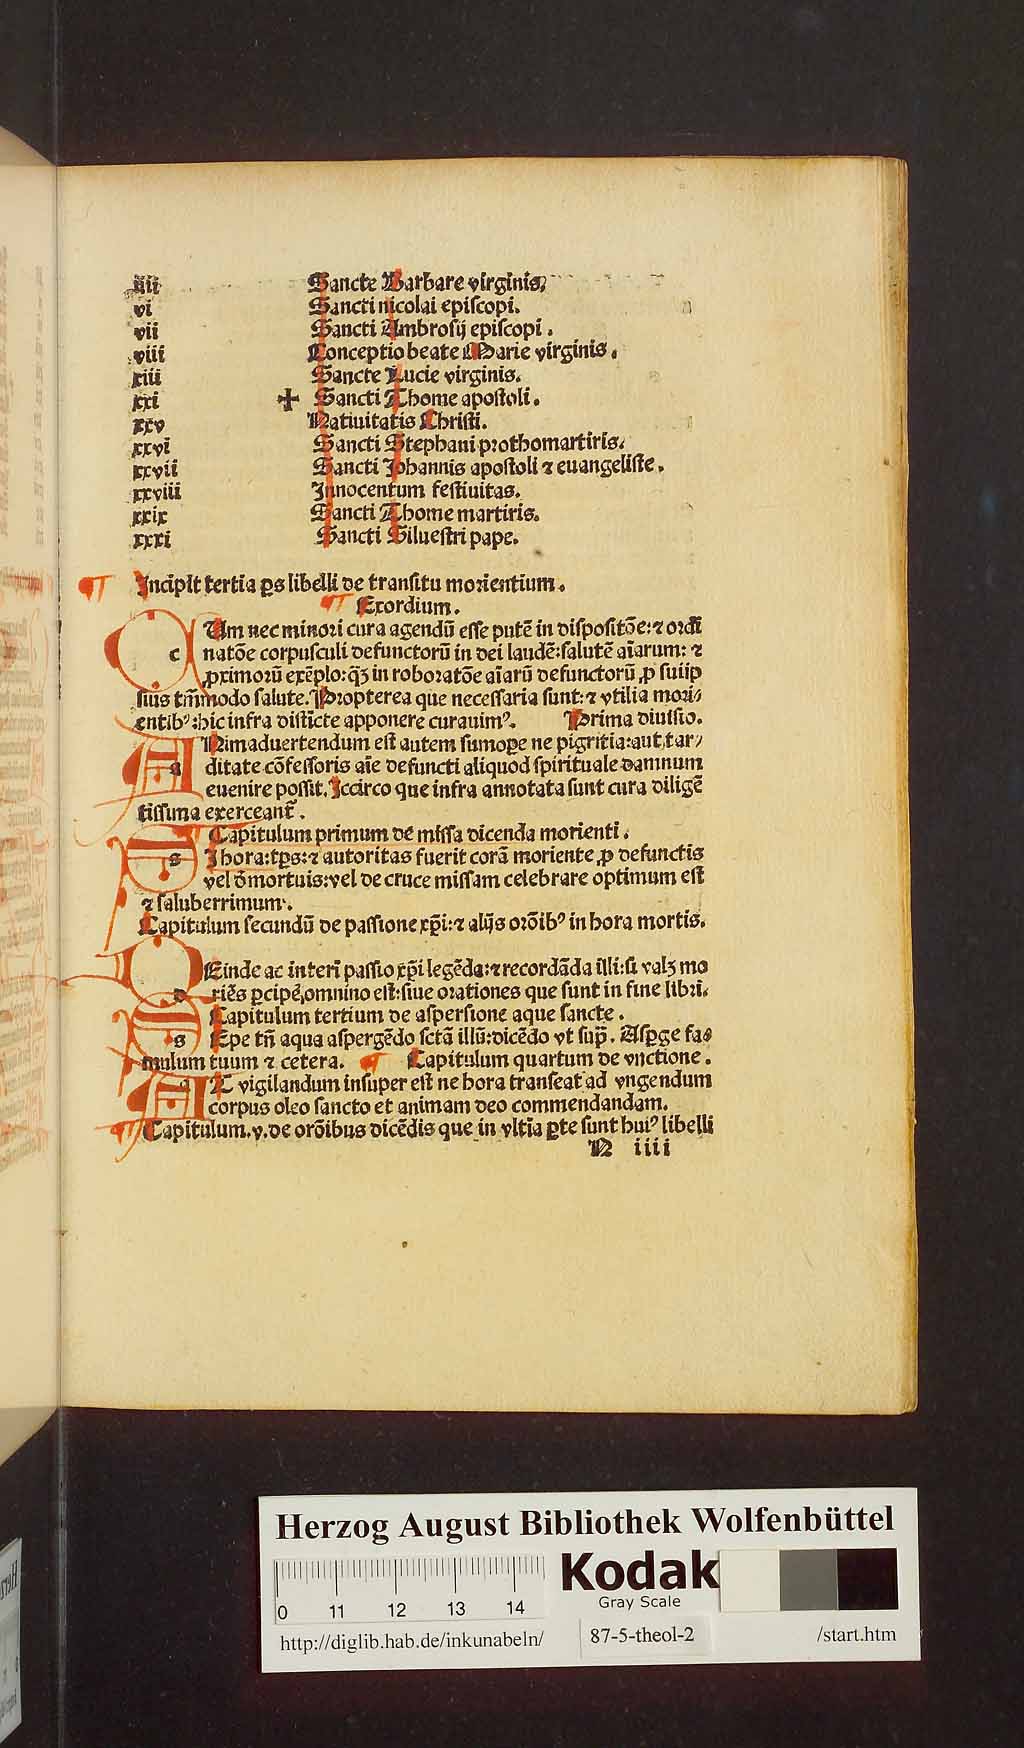 iiii Sancte Barbare virginis.
vi Sancti nicolai episcopi.
vii Sancti Ambrosij episcopi.
viii Conceptio beate Marie virginis.
xiii Sancte Lucie virginis.
xxi ✠ Sancti Thome apostoli.
xxv Natiuitatis Christi.
xxvi Sancti Stephani prothomartiris.
xxvii Sancti Johannis apostoli ⁊ euangeliste.
xxviii Innocentum festiuitas.
xxix Sancti Thome martiris.
xxxi Sancti Siluestri pape.
¶ Incipit tertia ꝑs libelli de transitu morientium.
¶ Exordium.
c Um nec minori cura agendū esse putē in dispositōe: ⁊ ordi
natōe corpusculi defunctorū in dei laudē: salutē aīarum: ⁊
ꝓximorū exēplo: qꝫ in roboratōe aīarū defunctorū ꝓ suiip
sius tm̄modo salute. Propterea que necessaria sunt: ⁊ vtilia mori⸗
entibꝰ: hic infra disticte apponere curauimꝰ. Prima diuisio.
a Nimaduertendum est autem sumoꝑe ne pigritia: aut tar⸗
ditate cōfessoris aīe defuncti aliquod spirituale damnum
euenire possit. Iccirco que infra annotata sunt cura diligē
tissima exerceant̄.
Capitulum primum de missa dicenda morienti.
s I hora: tꝑs: ⁊ autoritas fuerit corā moriente ꝓ defunctis
vel ō mortuis: vel de cruce missam celebrare optimum est
⁊ saluberrimum.
Capitulum secundū de passione xp̄i: ⁊ alijs orōibꝰ in hora mortis.
d Einde ac interī passio xp̄i legēda: ⁊ recordāda illi: si valꝫ mo
riēs ꝑcipe, omnino est: siue orationes que sunt in fine libri.
Capitulum tertium de aspersione aque sancte.
s Epe tn̄ aqua aspergēdo sctā illū: dicēdo vt sup̄. Asꝑge fa⸗
mulum tuum ⁊ cetera. ¶ Capitulum quartum de vnctione.
a T vigilandum insuper est ne hora transeat ad vngendum
corpus oleo sancto et animam deo commendandam.
¶ Capitulum. v. de orōibus dicēdis que in vltīa ꝑte sunt huiꝰ libelli
N iiii
Herzog August Bibliothek Wolfenbüttel
0 11 12 13 14
Kodak
Gray Scale
http://diglib.hab.de/inkunabeln/ 87-5-theol-2 /start.htm